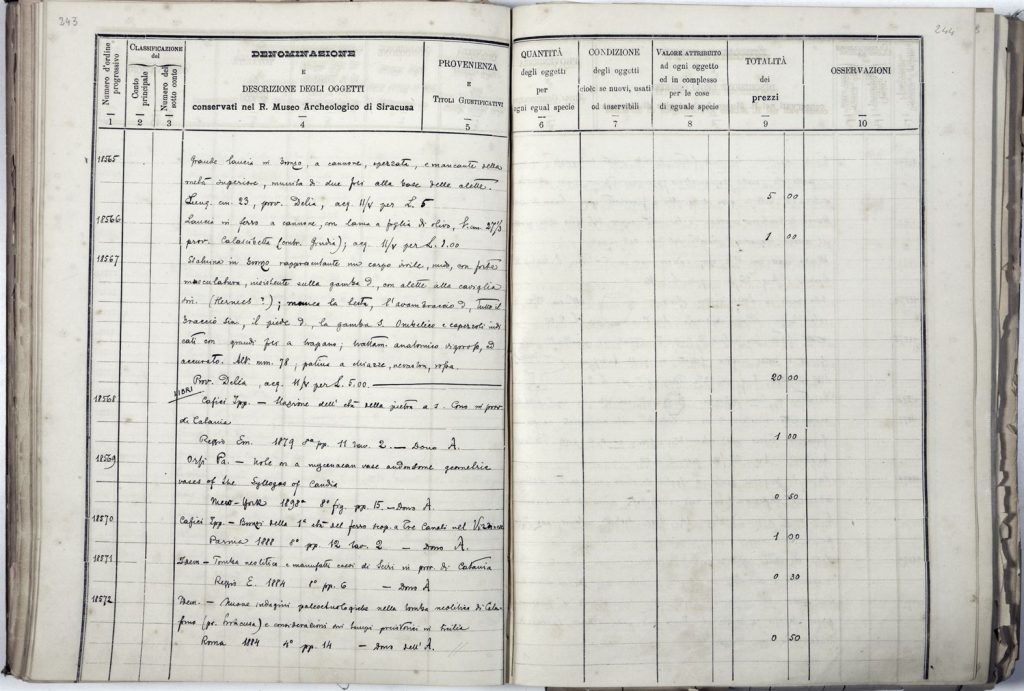 243
244
Numero d'ordine progressivo
CLASSIFICAZIONE del
Conto principale
Numero del sotto conto
DENOMINAZIONE
E
DESCRIZIONE DEGLI OGGETTI
conservati nel R. Museo Archeologico di Siracusa
PROVENIENZA
E
TITOLI GIUSTIFICATIVI
QUANTITÀ
degli oggetti
per
ogni egual specie
CONDIZIONE
degli oggetti
cioè se nuovi, usati
od inservibili
VALORE ATTRIBUITO
ad ogni oggetto
od in complesso
per le cose
di eguale specie
TOTALITÀ
dei
prezzi
OSSERVAZIONI
1 2 3 4 5 6 7 8 9 10
18565 Grande lancia in bronzo, a cannone, spezzata, e mancante della
metà superiore, munita di due fori alla base delle alette.
Lung. cm. 23, prov. Delia, acq. 11/V per L. 5 5 00
18566 Lancia in ferro a cannone, con lama a foglia di olivo, cm. 27 1/3
prov. Calascibetta (contr. ); acq. 11/V per L. 1.00 1 00
18567 Statuina in bronzo rappresentante un corpo virile, nudo, con forte
muscolatura, insistente sulla gamba d., con alette alla caviglia
sin. (Hermes ?); manca la testa, l'avambraccio d, tutto il
braccio sin, il piede d, la gamba s. Ombelico e capezzoli indi
cati con grandi fori a trapano; trattam. anatomico vigoroso, ed
accurato. Alt. mm. 78, patina a chiazze, nerastra, rossa.
Prov. Delia, acq. 11/V per L. 5.00. 20 00
LIBRI
18568 Cafici Ipp. - Stazione dell'età della pietra a S. Cono in prov
di Catania
Reggio Em. 1879 8° pp. 11 tav. 2. — Dono A. 1 00
18569 Orsi Pa. - Note on a mycenaean vase and on some geometric
vases of the Syllogos of Candia
New-York 1898 8° fig. pp. 15 - Dono A. 0 50
18570 Cafici Ipp. - Bronzi della 1ª età del ferro scop. a Tre Canali nel Vizzinese
Parma 1888 8° pp. 12 tav. 2 — Dono A. 1 00
18571 Idem - Tomba neolitica e manufatti in prov. di Catania
Reggio E. 1884 8° pp. 6 — Dono A 0 30
18572 Idem. - Nuove indagini paleoetnologiche nella tomba neolitica di Cala-
farno (pr. Siracusa) e considerazioni sui tempi preistorici in Sicilia
Roma 1884 4° pp. 14 — Dono dell'A. 0 50